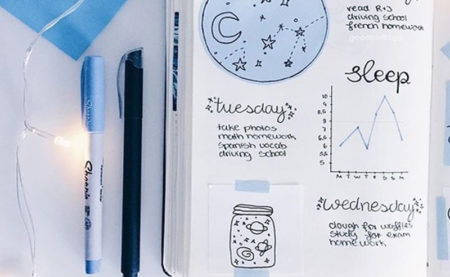 read R+J
driving school
french homework
sleep
tuesday
take photos
math homework
spanish vocab
driving school
M T W T F S S
wednesday
dough for waffles
study for exam
homework